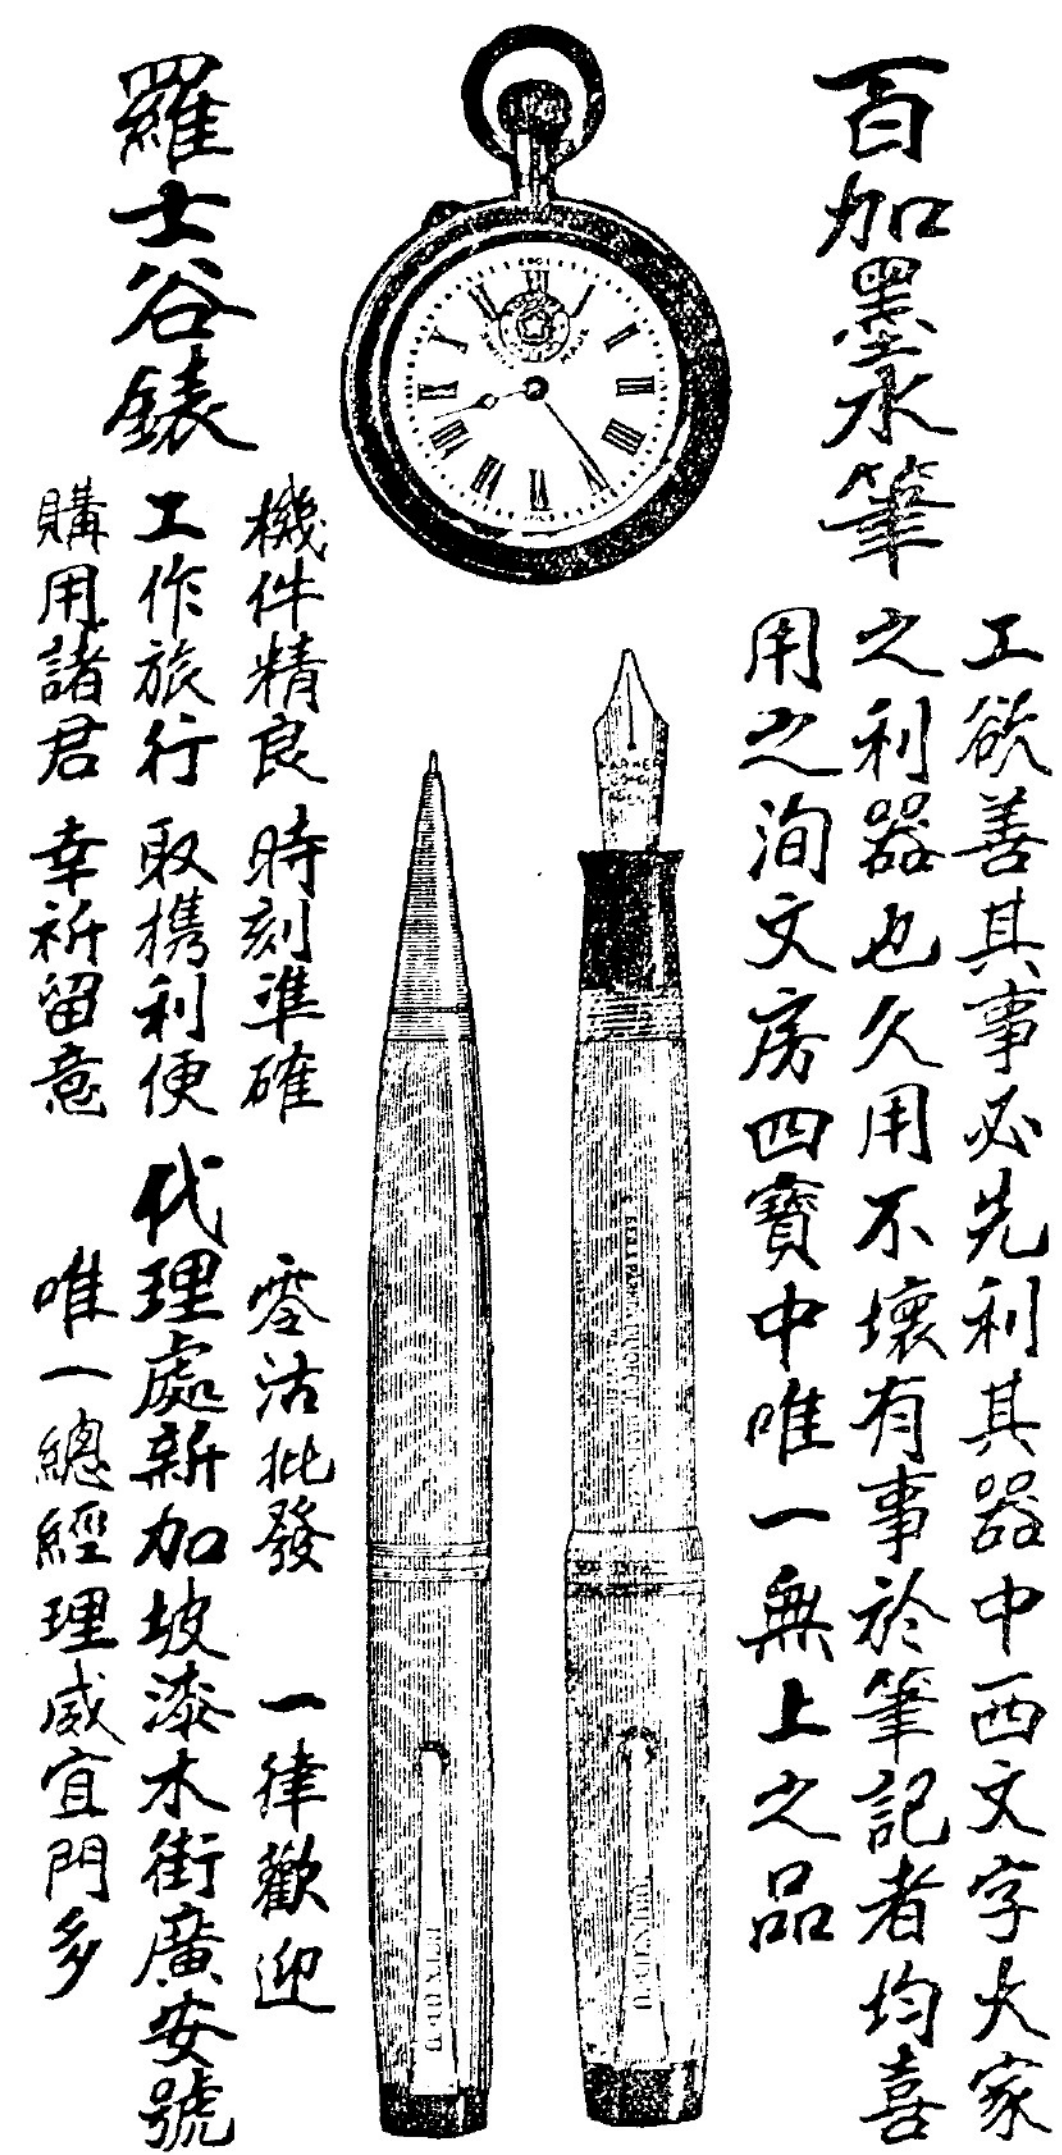 百加墨水筆
工欲善其事必先利其器中西文字大家
之利器也久用不壞有事於筆記者均喜
用之洵文房四寶中唯一無上之品
羅士谷錶
機件精良 時刻準確
工作旅行 取携利便
購用諸君 幸祈留意
零沽批發 一律歡迎
代理處新加坡漆木街廣安號
唯一總經理威宜門多
SWISS MADE
PARKER